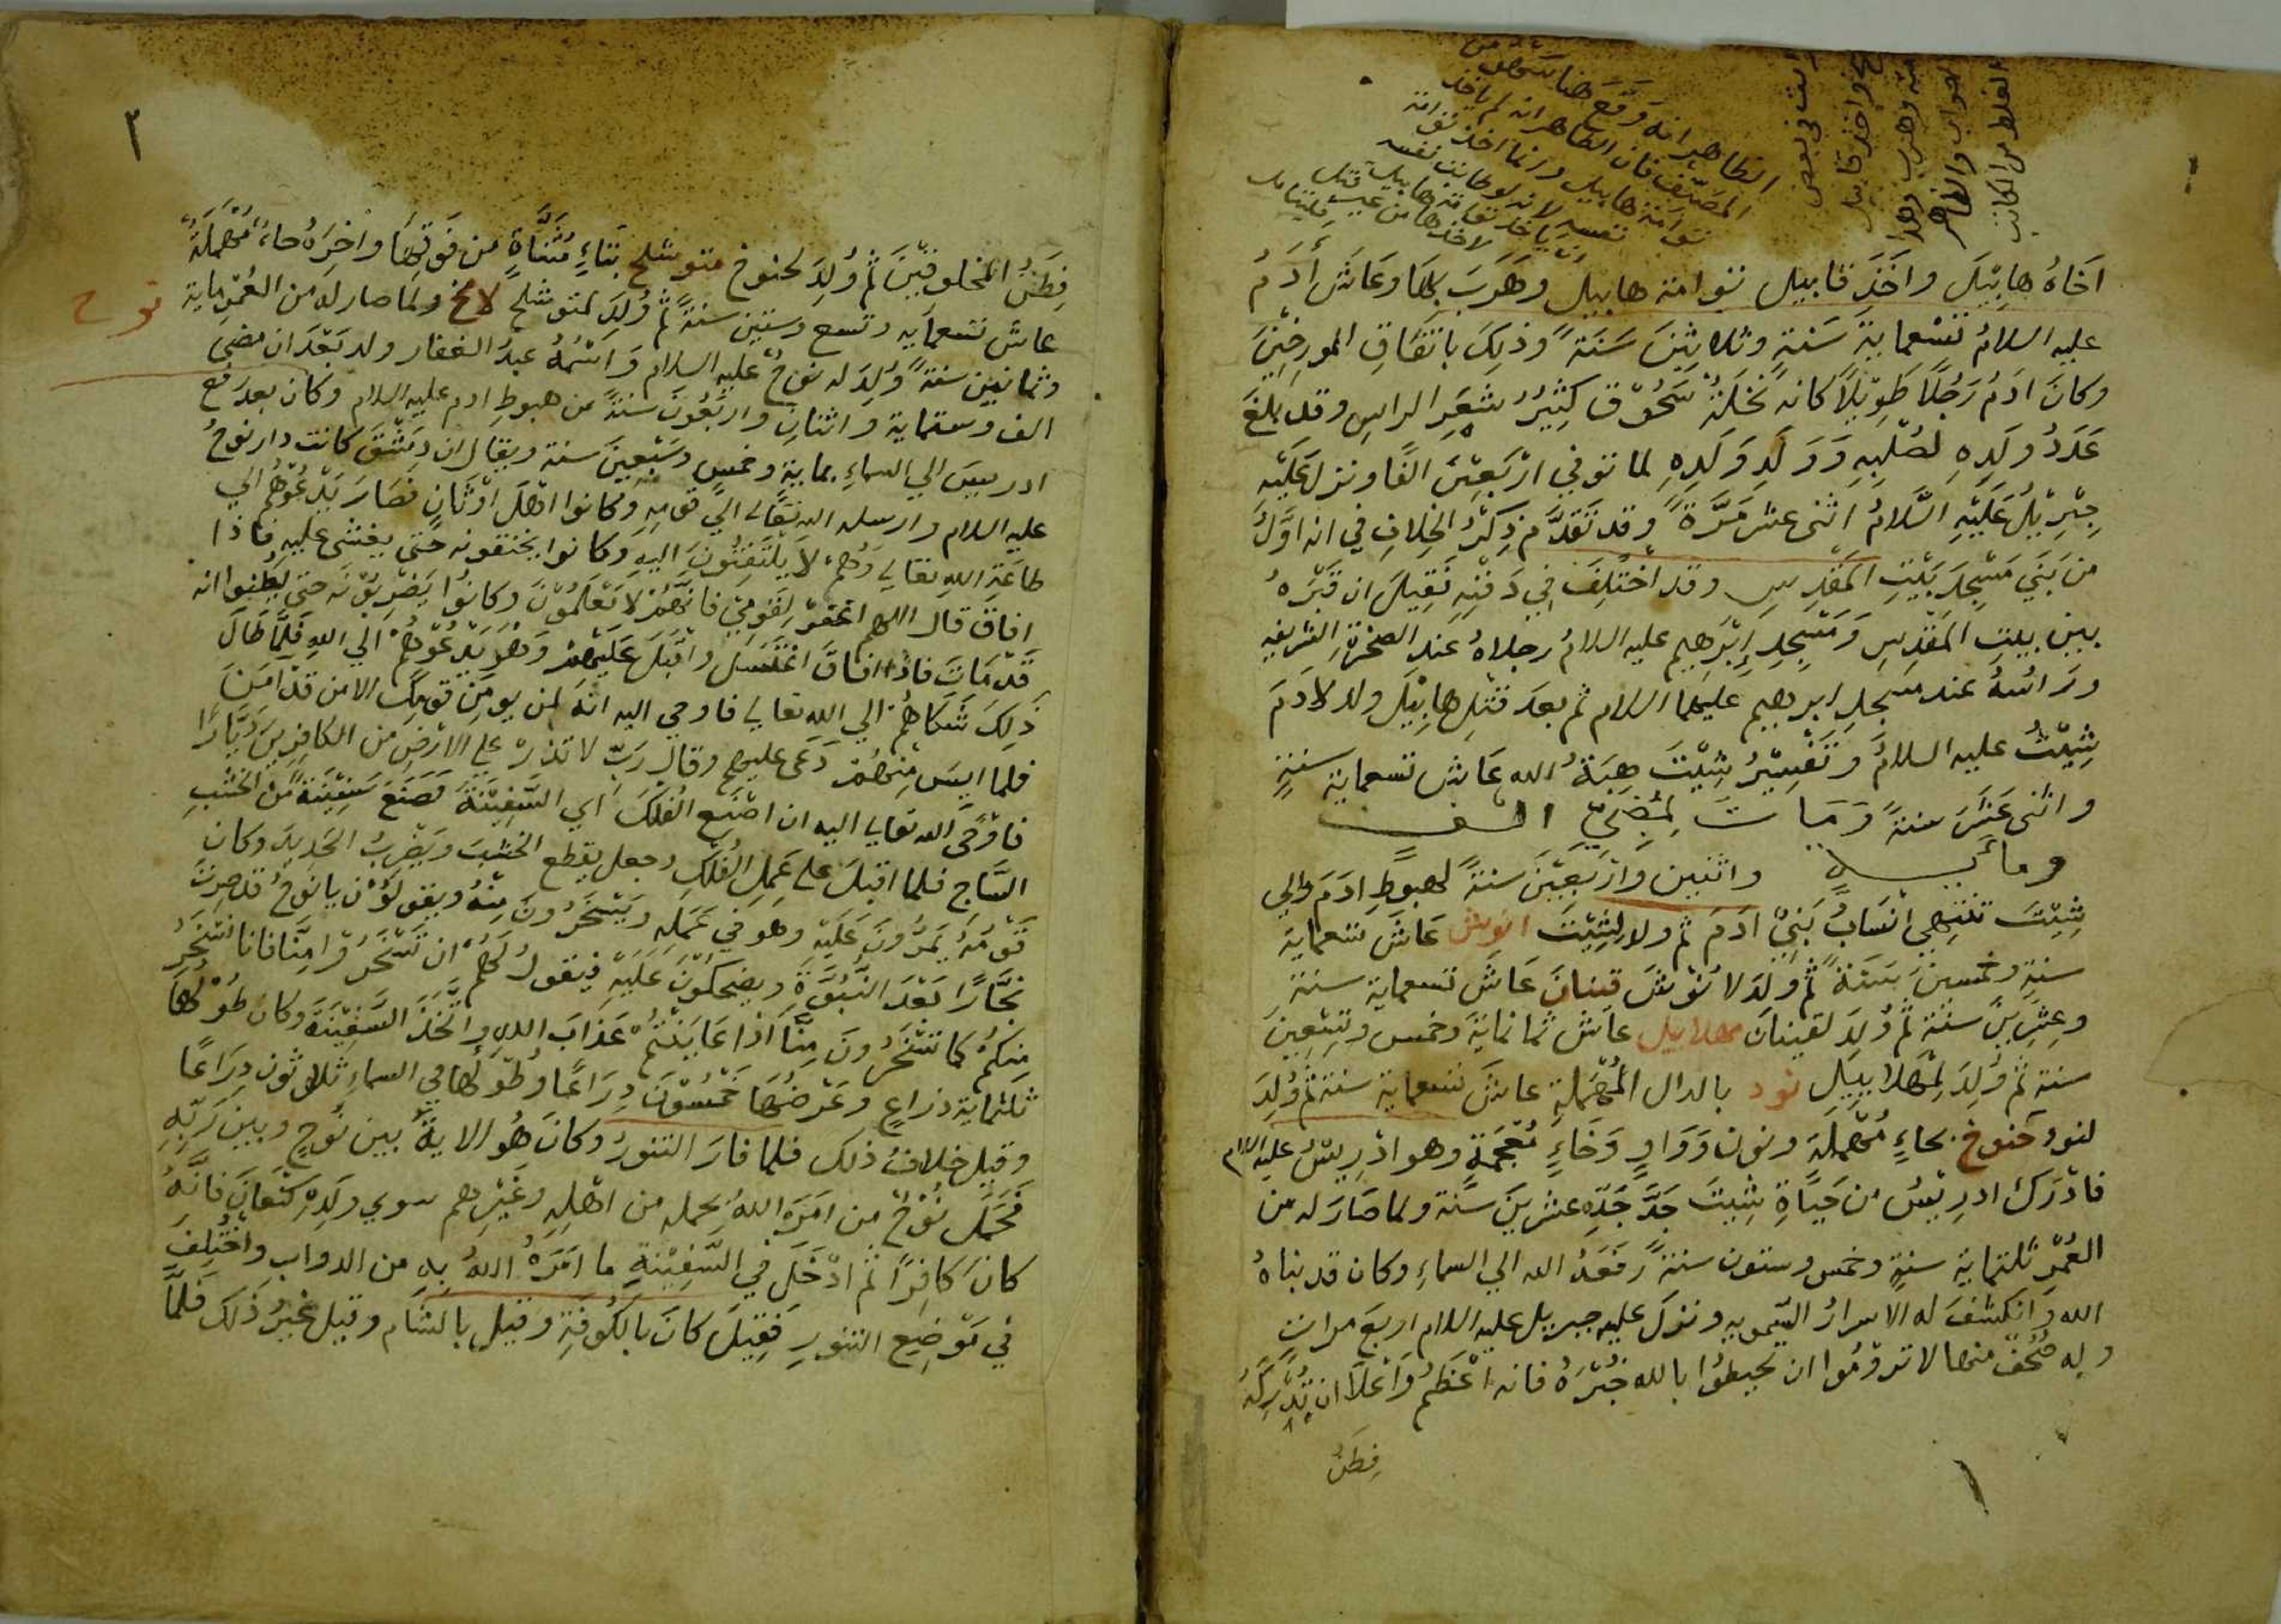 الظاهر انه وقع هنا سهو من
المصنف فان الظاهر انه لم ياخذ
توامة هابيل وانما اخذ توامة
نفسه لانه لو طابت نفسه
ان ياخذ توامة هابيل قبل
لاخذها من غير فليتامل
الغلط من الكاتب
اخاه هابِيْلَ واخَذَ قابيل توامة هابيل وهَرَبَ بها وعَاشَ أدَمُ
عليه السلامُ تسْعماية سَنةٍ وثلاثِيْنَ سَنَةً وذلِكَ باتفَاقِ المورخِيْنَ
وكانَ ادَمُ رَجُلاً طَوِيْلاً كانه نَخْلَةٌ سَحُوْق كثِيْرُ شعَرِ الراسِ وقد بلغَ
عَدَدُ ولَدِهِ لصُلْبِهِ وَوَلَدِ وَلَدِهِ لما توفي ارْبَعِيْنَ الفًا ونزل عَلَيْهِ
جبْرِيْلُ عَلَيْهِ السَّلامُ اثنى عشر مَرَّةً وقد تَقَدَّمَ ذِكْرُ الخِلافِ في انه اوَّلُ
من بَنَي مَسْجِدَ بَيْتِ المَقْدِسِ وقد اخْتُلِفَ في دَفْنِهِ فَقِيلَ ان قَبْرَهُ
بين بيتِ المَقْدِسِ وَمَسْجِدِ إِبْرَهِيم عليه السلامُ رجلاهُ عند الصخْرَةِ الشريفه
ورَاسُهُ عند مَسجدِ ابرهيم عليهما السلام ثم بعدَ قتلِ هابِيْلَ ولد لادَمَ
شِيْثُ عليه السلامُ وتَفْسِيْرُ شِيْثَ هِبَةُ الله عَاش تسعماية سنةٍ
واثنى عَشَرَ سنةً وَمَاتَ لمُضِيِّ الف
وماية واثنين وارْبَعِيْنَ سنةً لهبوطِ ادَمَ والي
شِيْثَ تنتهي انسَابُ بَنِيْ ادَمَ ثم ولد لِشِيْثَ انوش عَاشَ تسعماية
سنةٍ وخمسينَ سَنَةً ثم ولِدَ لانوْشَ قينان عَاشَ تسعماية سنة
وعِشرِيْنَ سنَةً ثم وُلِدَ لقينانَ مهلابيل عاش ثمانماية وخمس وتِسْعِينَ
سنة ثم وُلِدَ لِمْهلابيِلِ نود بالدال المُهْمَلةِ عاشَ تسعماية سنة ثم وُلِدَ
لنود حَنوخ بحاءٍ مُهملةٍ ونون وَوَاوٍ وَخاءٍ مُعْجَمَةٍ وهو ادْرِيْسُ عليه السلام
فادْرَكَ ادرِيْسُ من حَياةِ شِيثَ جَدِّ جَدِّهِ عشرِيْنَ سَنَة ولما صَارَ له من
العُمْرِ ثلثماية سنةٍ وخمس وستون سنةً رَفَعَهُ الله الي السماءِ وكان قد نباهُ
الله وَانكشفَ له الاسرارُ السّموية ونزلَ عليه جبريل عليه السلام اربَعَ مراتٍ
وله صُحُفٌ منها لا تروْمُوا ان تحيطوُا بالله خُبْرَهُ فانه اعْظَمُ وَاعْلاَ ان تُدْرِكَهُ
فِطَنُ
١
٢
فِطَنُ المخلوقيْنَ ثم وُلِدَ لحنوخ متوشلح بتاءٍ مُثَنَّاةٍ من فَوقِها واٰخِرَهُ حاءٌ مُهْمَلَةٌ
عاش تسعمايه وتسع وستين سنةً ثم وُلِدَ لمتوشلح لامخ ولما صار له من العُمْر ماية
نوح
وثمانين سنةً وُلِدَ له نوحٌ عليه السلام وَاسْمُهُ عبدُ الغفار ولد بَعْدَ ان مضى
الف وستماية وَاثنانِ وارْبَعُونَ سنةً من هبوطِ ادم عليه السلام وكان بعد رَفْعِ
ادريسَ الي السماءِ بماية وخمسٍ وسَبْعِينَ سنة ويقال ان دِمَشْقَ كانت دار نوحُ
عليه السلام وارسله الله تعَالى اليَ قومِهِ وكانوا اهْلَ اوْثانٍ فصَارَ يَدْعُوْهُم الي
طاعَةِ اللهِ تعالي وَهُم لاَ يَلْتَفِتُونَ اليهِ وَكانوا يخنقونه حَتى يغشى عليهِ فاذا
افاقَ قال اللهم اغفِرْ لِقَوْمِي فانهُمْ لاَ يَعْلَمُوْنَ وكانوُا يَضْرِبُوْنَه حَتى يَظنوا انه
قَدْ مَاتَ فاذا افاقَ اغْتَسَل واقبَلَ عَلَيْهِمْ وَهُوَ يَدعُوْهُمْ الي اللهِ فَلَمَّا طَالَ
ذَلِكَ شَكَاهُمْ الي اللهِ تعالي فاوحي اليه انهَ لن يومِنَ من قومِكَ الا من قدْ اٰمَنَ
فلما ايسَ مِنْهُمْ دَعَى عليهِم وقالَ رَبِّ لا تذرْ علي الارْضِ من الكافِرِيْنَ دَيَّارًا
فاوْحَى الله تعالي اليه ان اصْنَعِ الفُلكَ اي السَّفِيْنَةَ فصَنَعَ سَفِيْنةً من الخشبِ
السَّاجِ فلما اقبلَ علي عَمَلِ الفُلكِ وجعلَ يقطعِ الخشبَ ويَضْرِبُ الحَدِيدَ وكان
قَوْمُهُ يَمُرُّونَ عَلَيْهِ وهو في عَمَلِهِ ويَسْخَرُونَ مِنهُ ويقولُوْنَ يا نوحُ قد صِرْتَ
نجَّارًا بَعْدَ النُّبُوَّةِ ويضحكُوْنَ عَلَيْهِ فيقول لَهُم ان تَسْخَرُوْا مِنَّا فانا نسْخَرُ
مِنكُمْ كما تَسْخَرُونَ مِنَّا اذا عَايَنْتُمْ عَذابَ اللهِ واتَّخَذَ السَّفِيْنَةَ وكان طُوْلُهَا
ثلثماية ذراعٍ وعَرْضُهَا خَمْسُوْنَ ذِرَاعًا وطُوْلُها في السماءِ ثلاثون ذِرَاعًا
وقيل خلافُ ذلك فلما فارَ التنورُ وكانَ هُوَ الايةَ بين نُوحٍ وبين رَبِّهِ
فَحَمَلَ نُوْحٌ من امَرَهُ اللهُ بحمله من اهْلِهِ وغَيْرِهم سوي ولَدِهِ كَنْعَانَ فانَّهُ
كانَ كافِرًا ثم ادْخَلَ في السَّفِيْنةِ ما امَرَهُ اللهُ بِهِ من الدوابِ واخْتُلِفَ
في مَوْضِعِ التنورِ فَقِيلَ كانَ بالكُوفَةِ وقيل بالشَّام وقيلَ غيْرُ ذَلكَ فَلمَّا